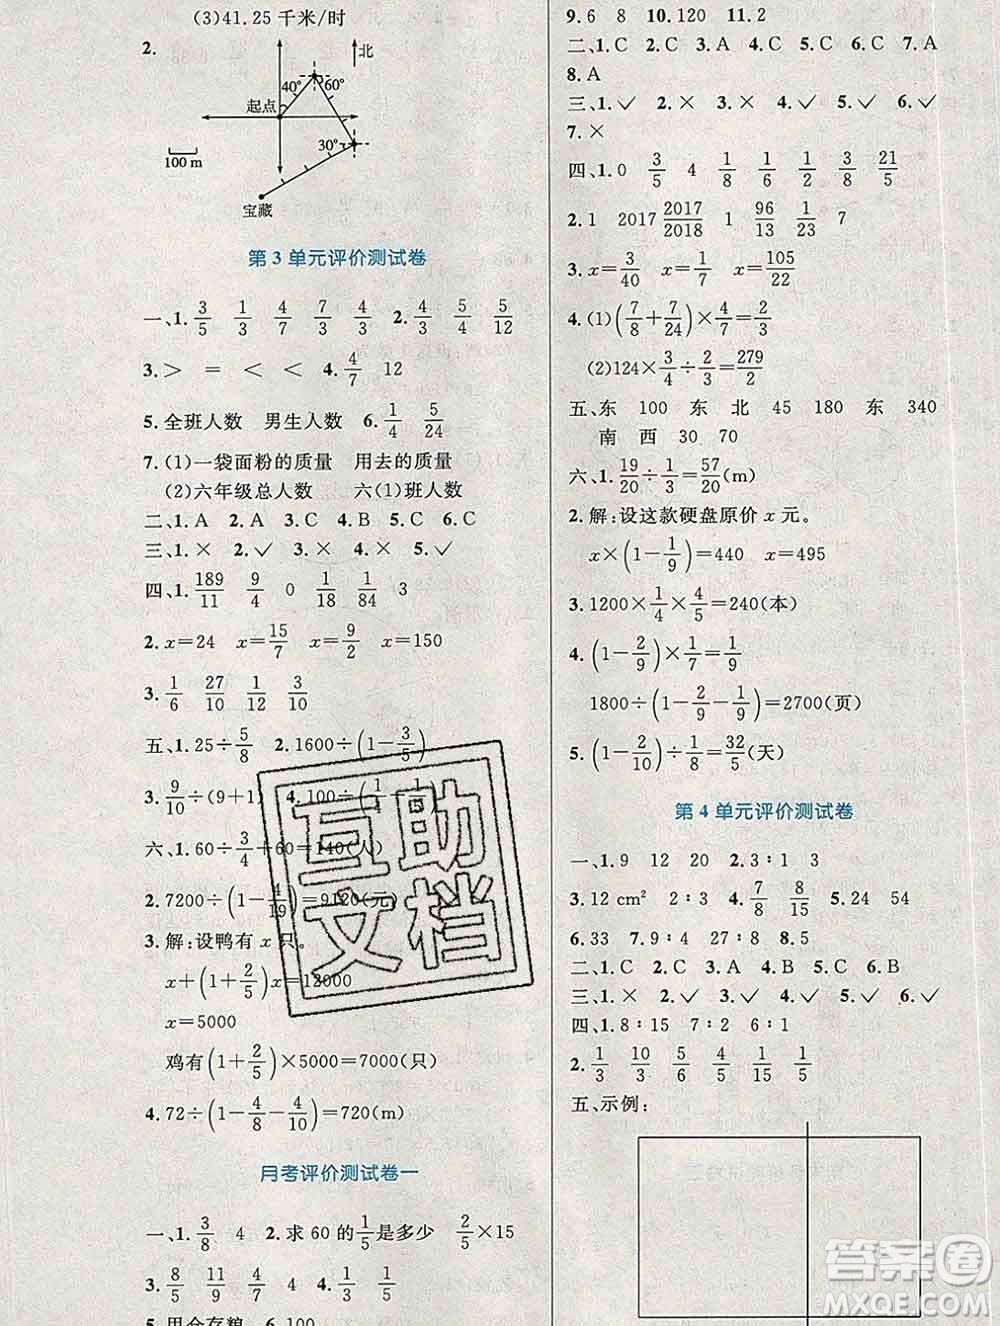 (3)41.25 千米/时
2.
北
40°
60°
起点
30°
100 m
宝藏
第 3 单元评价测试卷
一、1. 3/5 1/3 4/7 7/3 4/3 2. 4/3 5/4 5/12
3. > = < < 4. 4/7 12
5. 全班人数 男生人数 6. 1/4 5/24
7. (1)一袋面粉的质量 用去的质量
(2)六年级总人数 六(1)班人数
二、1. A 2. A 3. C 4. B 5. C 6. C
三、1. × 2. ✓ 3. ✓ 4. × 5. ✓
四、1. 189/11 9/4 0 1/18 1/84 3
2. x=24 x=15/7 x=9/2 x=150
3. 1/6 27/10 1/12 3/10
五、1. 25÷5/8 2. 1600÷(1-3/5)
3. 9/10÷(9+1) 4. 100÷
六、1. 60÷3/4+60=140(人)
2. 7200÷(1-4/19)=9120(元)
3. 解:设鸭有 x 只。
x+(1+2/5)x=12000
x=5000
鸡有(1+2/5)×5000=7000(只)
4. 72÷(1-4/8-4/10)=720(m)
月考评价测试卷一
一、1. 3/8 4 2. 求 60 的1/5是多少 2/5×15
3. 5/8 11/9 4/7 4 4. 1/3 1/3
5. 甲仓存粮 6. 100
9. 6 8 10. 120 11. 2
二、1. C 2. C 3. A 4. C 5. C 6. C 7. A
8. A
三、1. ✓ 2. × 3. × 4. ✓ 5. ✓ 6. ✓
7. ×
四、1. 0 3/5 4 1/8 1/6 1/2 3/8 21/5
2. 1 2017 2017/2018 1 96/13 1/13 7
3. x=3/40 x=8/7 x=105/22
4. (1)(7/8+7/24)×4/7=2/3
(2)124×3/4÷2/3=279/2
五、东 100 东 北 45 180 东 340
南 西 30 70
六、1. 19/20÷1/3=57/20(m)
2. 解:设这款硬盘原价 x 元。
x×(1-1/9)=440 x=495
3. 1200×1/4×4/5=240(本)
4. (1-2/9)×1/7=1/9
1800×(1-2/9-1/9)=2700(页)
5. (1-2/10)÷1/8=32/5(天)
第 4 单元评价测试卷
一、1. 9 12 20 2. 3∶1 3
3. 12 cm² 4. 7/8 8/15 5. 24 54
6. 33 7. 9∶4 27∶8 8. 5
二、1. C 2. C 3. A 4. C 5. B 6. C
三、1. × 2. ✓ 3. ✓ 4. ✓ 5. ✓ 6. ✓
四、1. 8∶15 7∶2 6∶1
2. 1/3 10/3 5/6 4/5 1/3
五、示例:
互助
文档
答案圈
MXQE.COM